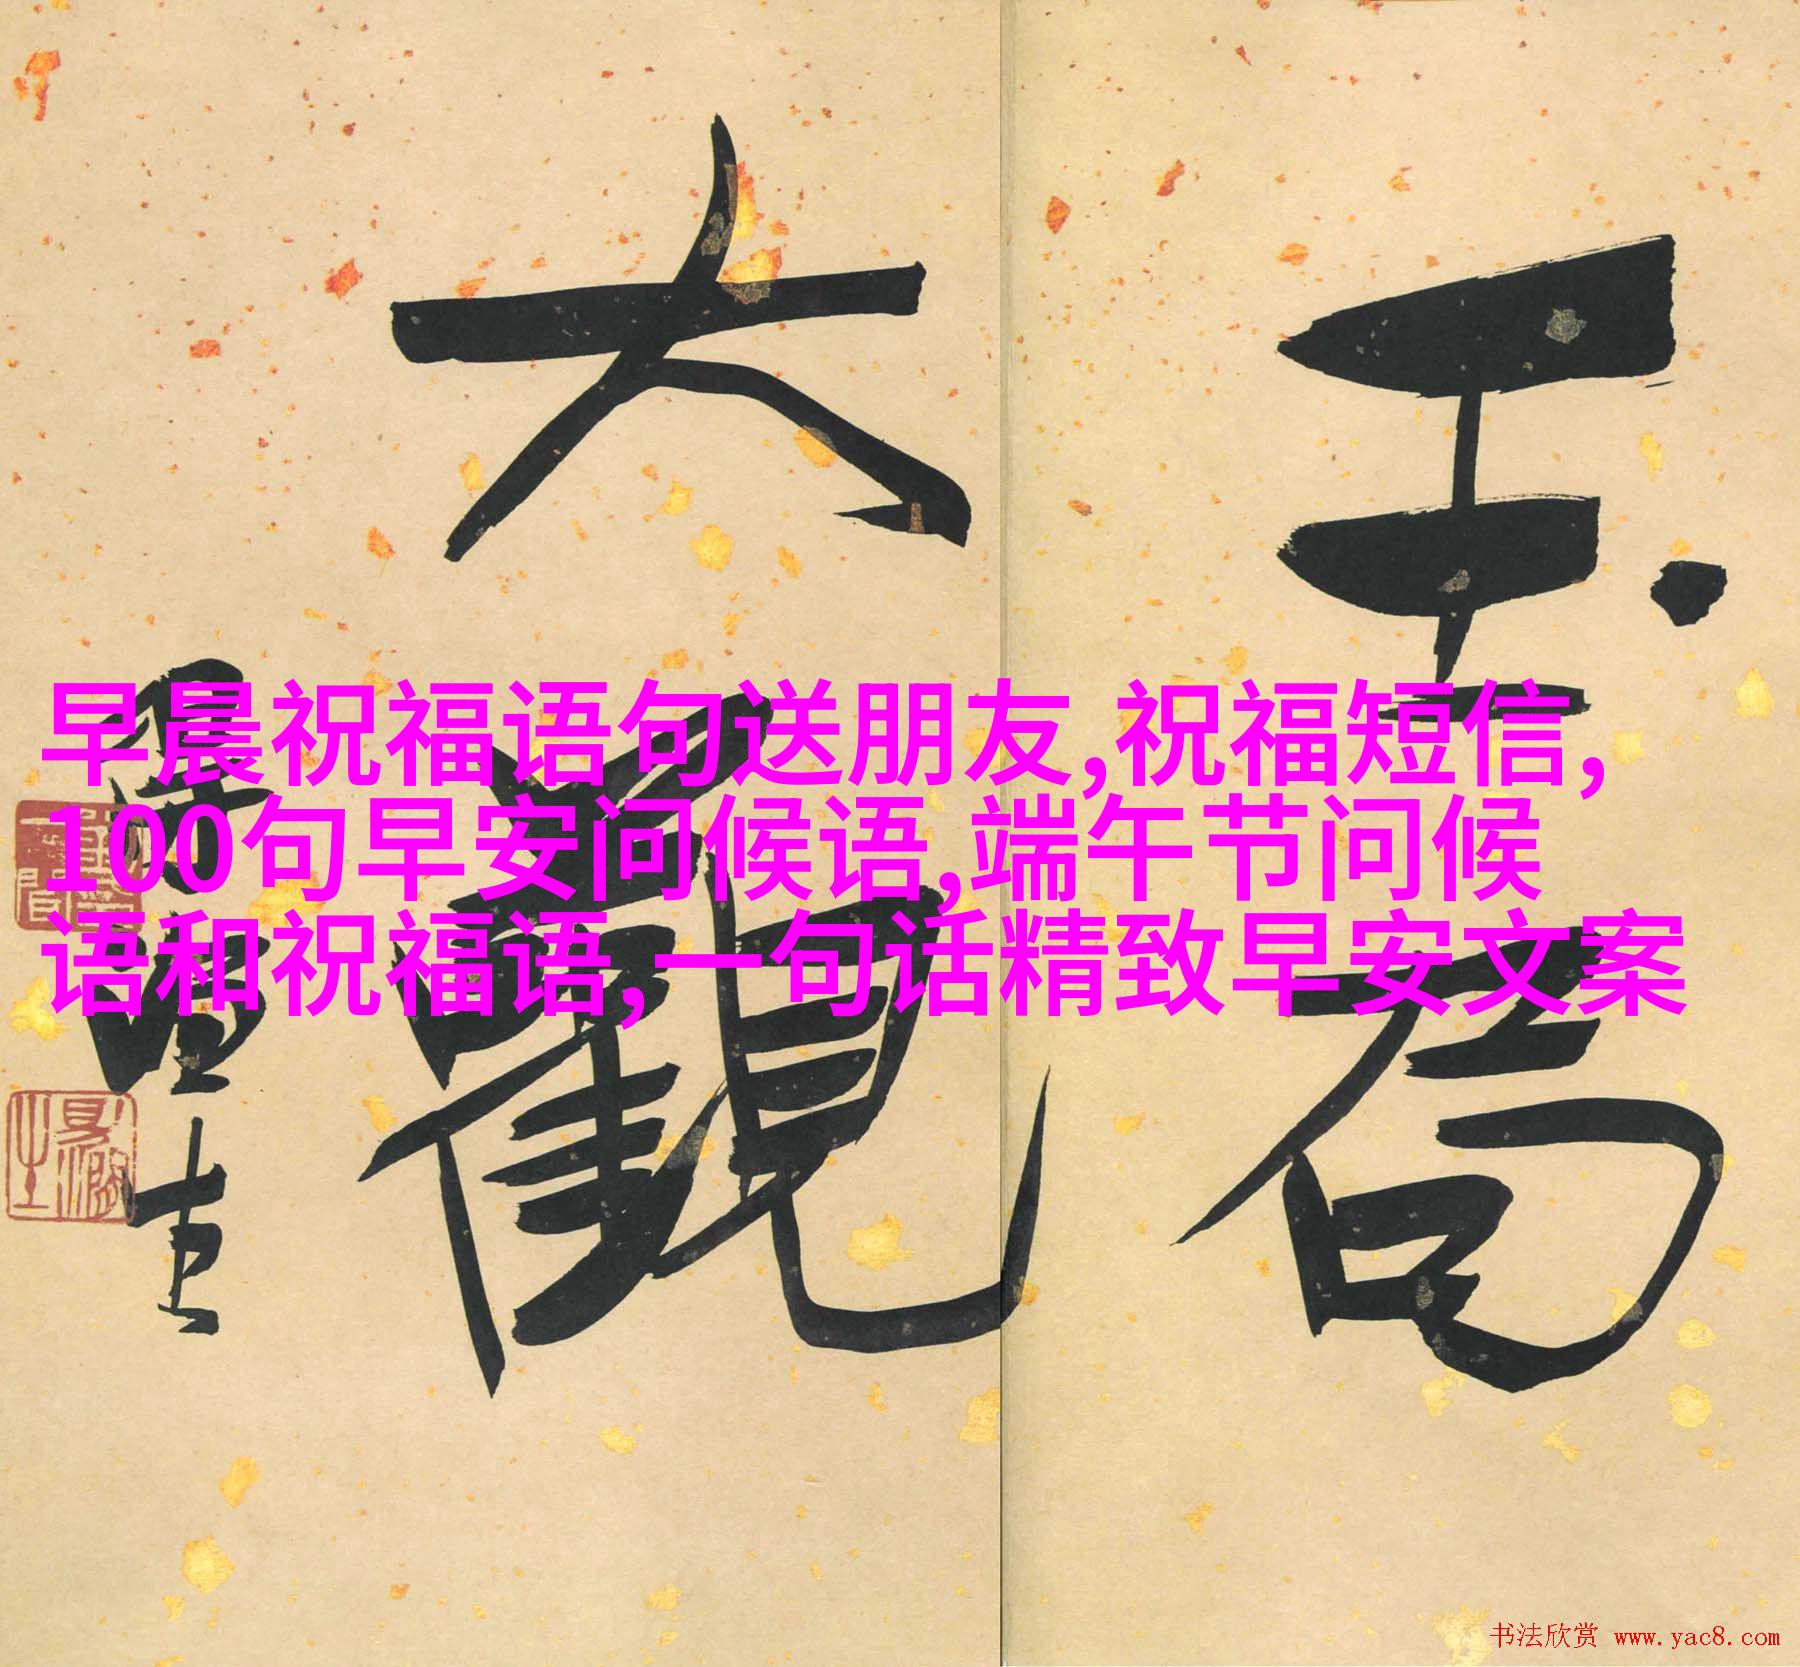 玉局
大觀
早晨祝福语句送朋友,祝福短信,
100句早安问候语,端午节问候
语和祝福语,一句话精致早安文案
书法欣赏 www.yac8.com